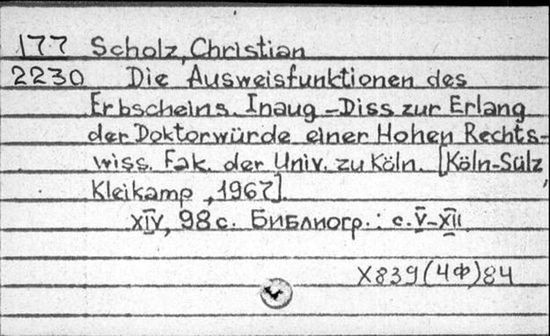 177 Scholz, Christian
2230 Die Ausweisfunktionen des
Erbscheins. Inaug-Diss zur Erlang
der Doktorwürde einer Hohen Rechts-
wiss. Fak. der Univ. zu Köln. [Köln-Sülz,
Kleikamp, 1967].
XIV, 98 с. Библиогр.: с. V-XII
X839(4Ф)84